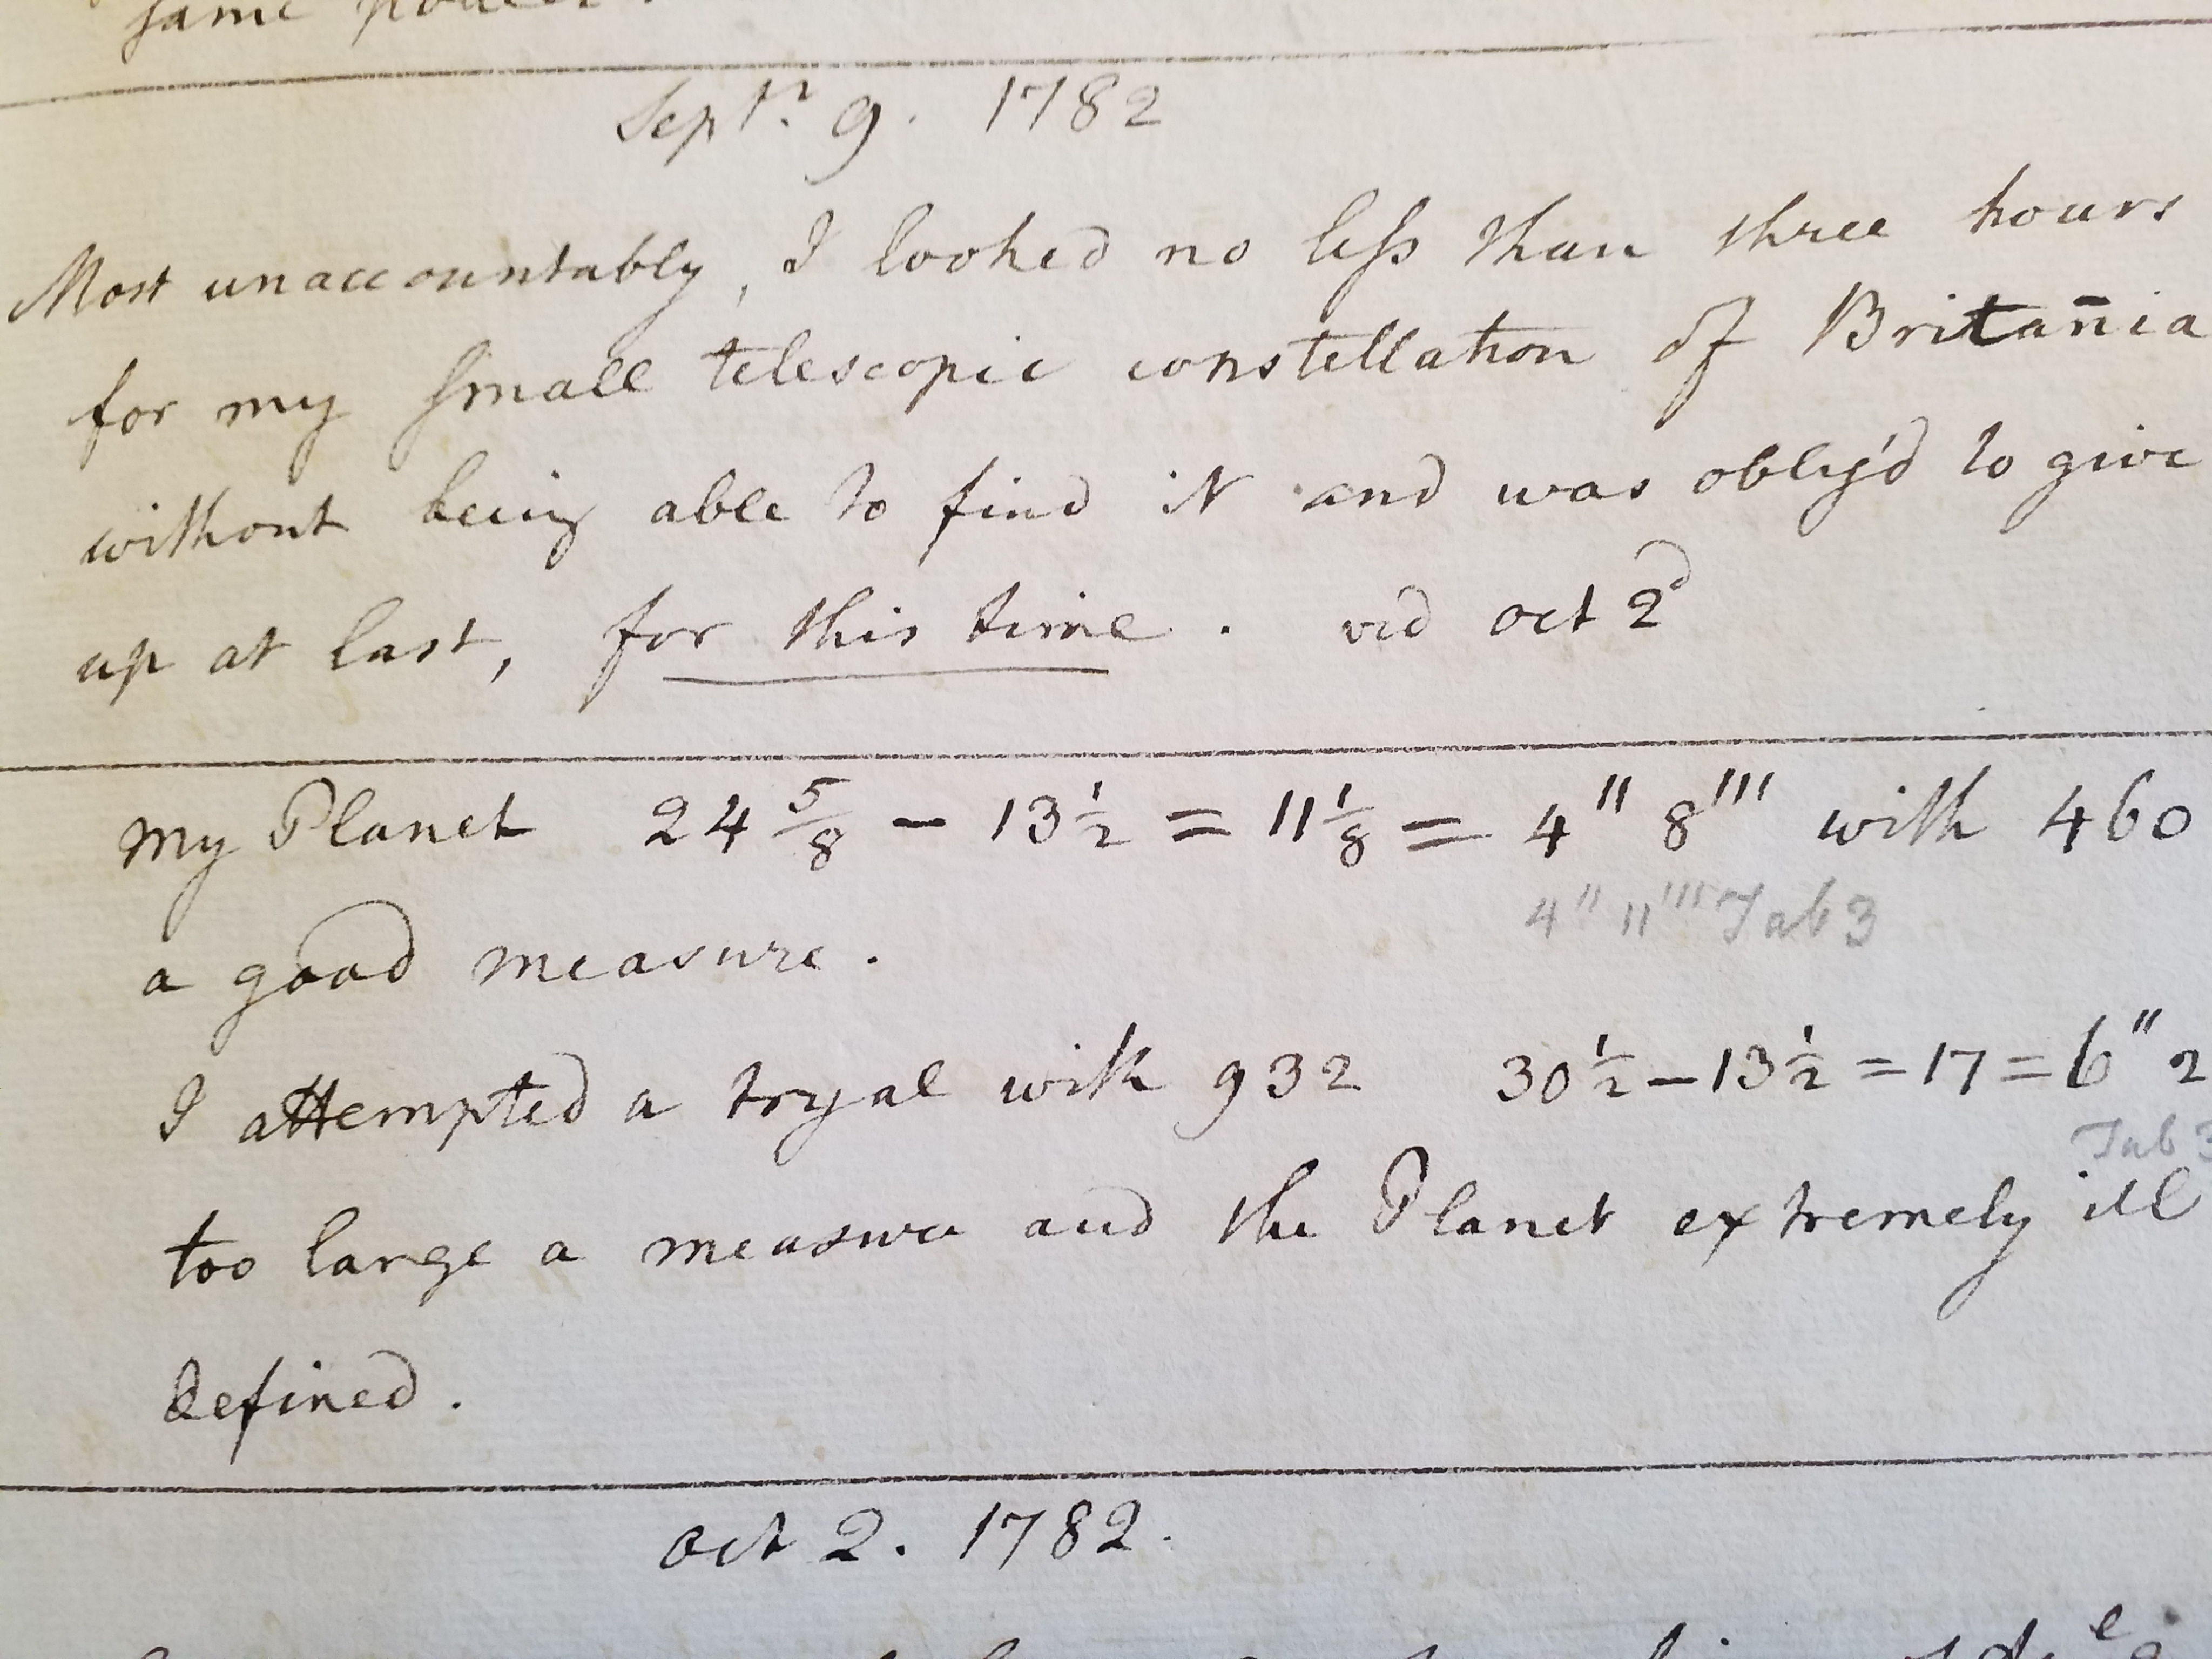 same power.
Septr. 9. 1782
Most unaccountably, I looked no less than three hours
for my small telescopic constellation of Britan̄ia
without being able to find it and was oblig'd to give
up at last, for this time. vid oct 2d
My Planet 24 5/8 - 13 1/2 = 11 1/8 = 4" 8''' with 460
4" 11''' Tab 3
a good measure.
I attempted a tryal with 932 30 1/2 - 13 1/2 = 17 = 6" 2
Tab 3
too large a measure and the Planet extremely ill
defined.
oct 2. 1782.